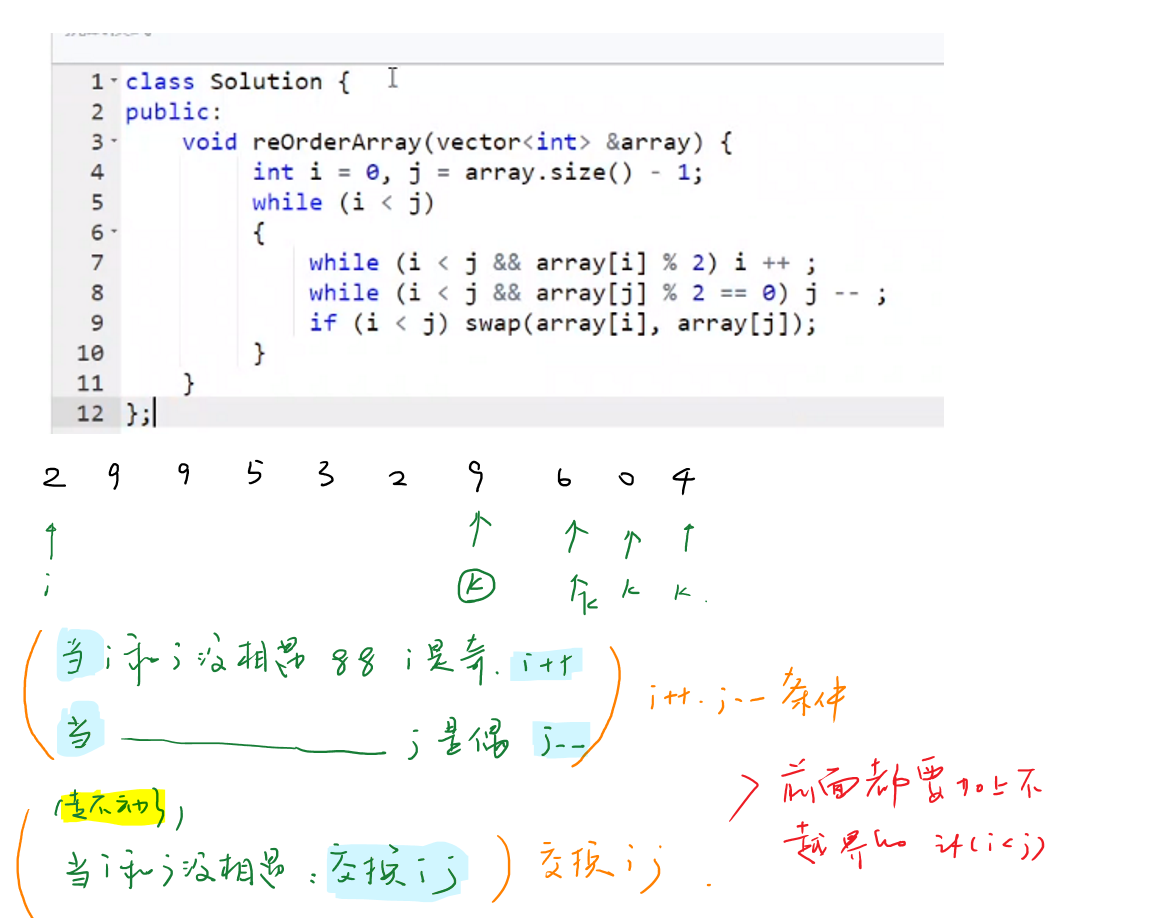 1 class Solution {
2 public:
3 void reOrderArray(vector<int> &array) {
4 int i = 0, j = array.size() - 1;
5 while (i < j)
6 {
7 while (i < j && array[i] % 2) i ++ ;
8 while (i < j && array[j] % 2 == 0) j -- ;
9 if (i < j) swap(array[i], array[j]);
10 }
11 }
12 };
2 9 9 5 3 2 9 6 0 4
i k k k k.
当i和j没相遇 && i是奇. i++
当 j是偶 j--
i++. j-- 条件
(走不动了),
当i和j没相遇: 交换ij
交换ij.
> 前面都要加上不
越界的 if(i<j)